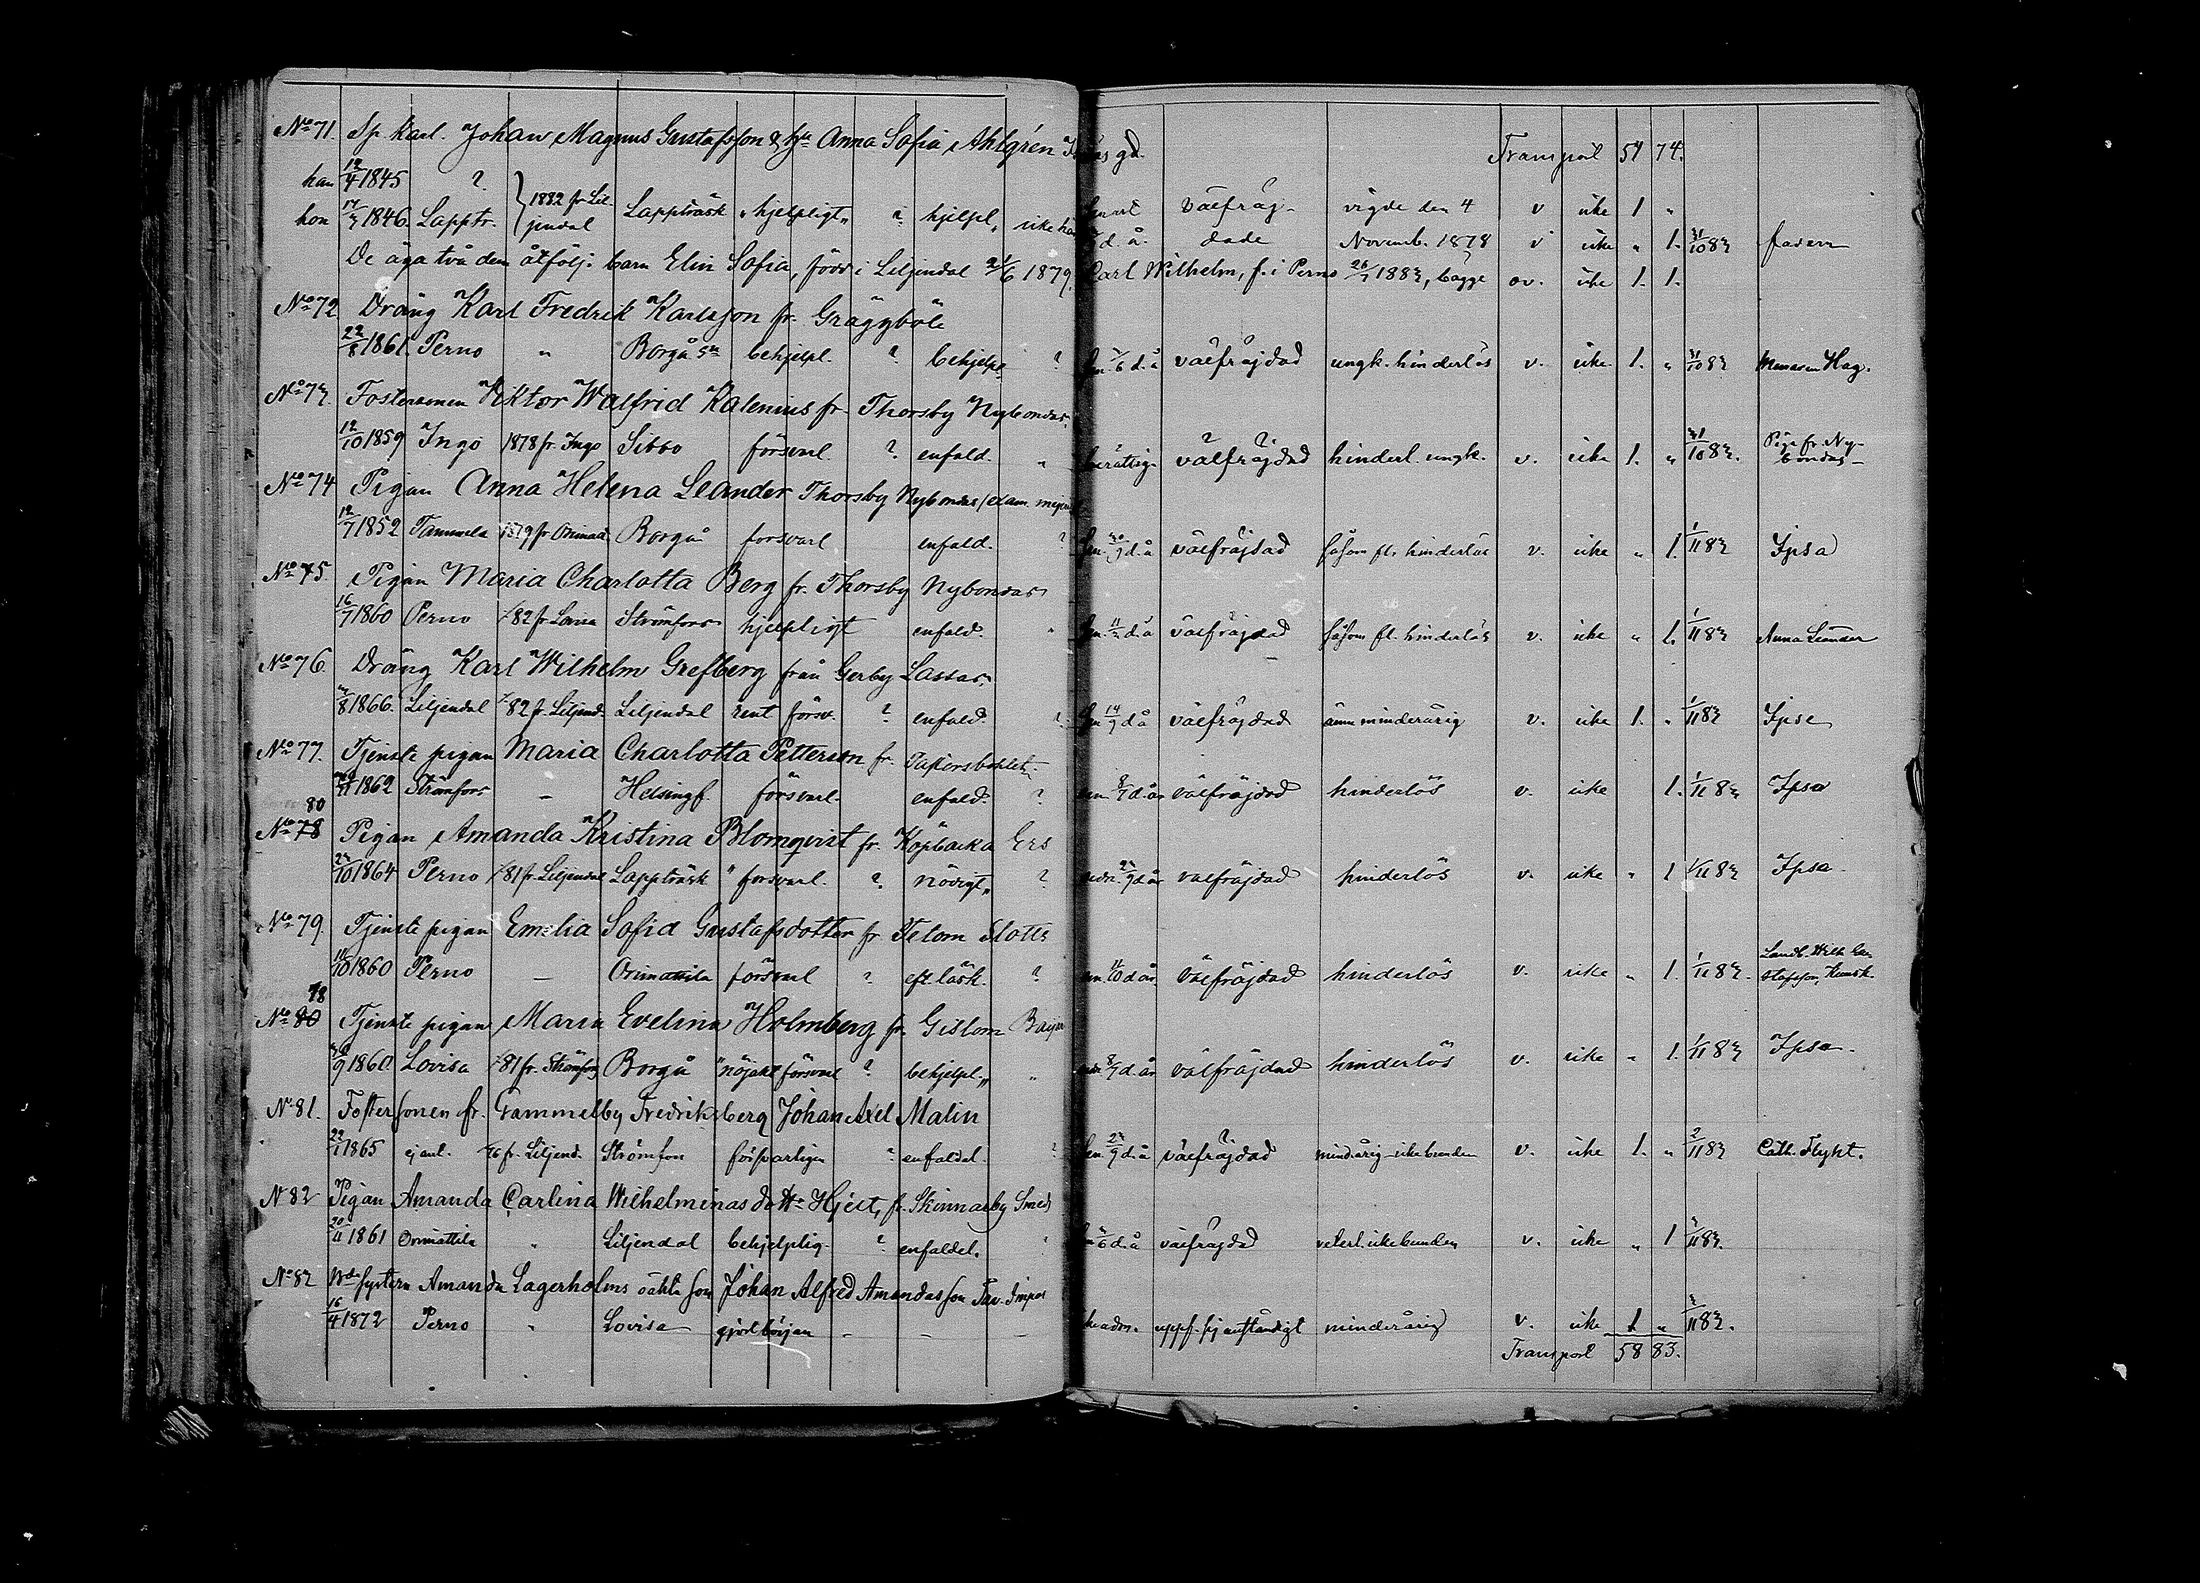 No 71. Sp. Karl. Johan Magnus Gustafsson & hu Anna Sofia Ahlgren gd. Transport 51 74.
han 12/4 1845 ?
hon 1846. Lapptr. 1882 fr Liljendal Lappträsk "hjelpligt" ? hjelpl. icke väl fräjdade vigde den 4 Novemb. 1878 v icke 1 "
d. å. v icke " 1. 31/10 83 fadern
De äga två dem åtfölj. barn Elin Sofia, född i Liljendal 1879. Carl Wilhelm, f. i Perno 1883, bägge ov. icke 1. 1.
No 72 Dräng Karl Fredrik Karlsson fr. Gräggböle
22/8 1861 Perno " Borgå behjelpl. ? behjelpl ? d. å välfräjdad ungk. hinderlös v. icke 1. " 31/10 83 Hag.
No 73. Fostersonen Viktor Walfrid Kalenius fr. Thorsby Nybondas.
12/10 1859 Ingo 1878 fr. Ingo Sibbo försvarl. ? enfald. " välfräjdad hinderl. ungk. v. icke 1. " 31/10 83. Piga fr. Nybondas
No 74 Pigan Anna Helena Leander Thorsby Nybondas
12/7 1852 Tammela 1879 fr Orimat. Borgå försvarl enfald. ? d. å välfräjdad såsom fl. hinderlös v. icke " 1. 1/11 83 Ipsa
No 75 Pigan Maria Charlotta Berg fr. Thorsby Nybondas
16/7 1860 Perno 82 fr Lovisa Strömfors hjelpligt enfald. " d. å välfräjdad såsom fl. hinderlös v. icke " 1. 1/11 83 Anna Leander
No 76. Dräng Karl Wilhelm Grefberg från Gerby Lassas.
8 1866. Liljendal 82 fr. Liljend. Liljendal rent försv. ? enfald. ? 14/9 d å välfräjdad ännu minderårig v. icke 1. " 1/11 83 Ipse
No 77. Tjenste pigan Maria Charlotta Petterson fr.
1862 Strömfors – Helsingf. försvarl. enfald. ? d. år välfräjdad hinderlös v. icke 1. 1/11 83 Ipsa
80
No 78 Pigan Amanda Kristina Blomqvist fr. Köpbacka Ers
23/10 1864 Perno 81 fr. Liljendal Lappträsk "försvarl. ? nödigt" ? d. år välfräjdad hinderlös v. icke " 1 1/11 83 Ipsa
No 79. Tjenste pigan Emelia Sofia Gustafsdotter fr Tetom Slotts
10 1860 Perno – Orimattila försvarl ? eft läsk. ? 10 d. år. välfräjdad hinderlös v. icke " 1. 1/11 83. Landb. Wilh. Gustafsson, Kuusk.
78
No 80 Tjenste pigan Maria Evelina Holmberg fr. Gislom
9 1860. Lovisa 81 fr. Strömfors Borgå "nöjakt försvarl ? behjelpl." " d. år välfräjdad hinderlös v. icke " 1. 1/11 83 Ipsa.
No 81. Fostersonen fr. Gammelby Fredriksberg Johan Axel Malin
22/1 1865 ej anl. 76 fr. Liljend. Strömfors försvarligen ? enfaldel. ? 23/9 d. å välfräjdad mindårig icke bunden v. icke 1. " 2/11 83 Cath. Flykt.
No 82 Pigan Amanda Carlina Wilhelminas dottr Hjelt, fr. Skinnarby Smeds
20/11 1861 Orimattila " Liljendal behjelplig. ? enfaldel. 6 d. å välfräjdad veterl. icke bunden v. icke " 1 11 83.
No 83 Amanda Lagerholms oäkta son Johan Alfred Amandasson
16/4 1872 Perno " Lovisa gjort början – – – uppf. sig anständigt minderårig v. icke 1 " 11 83.
Transport 58 83.